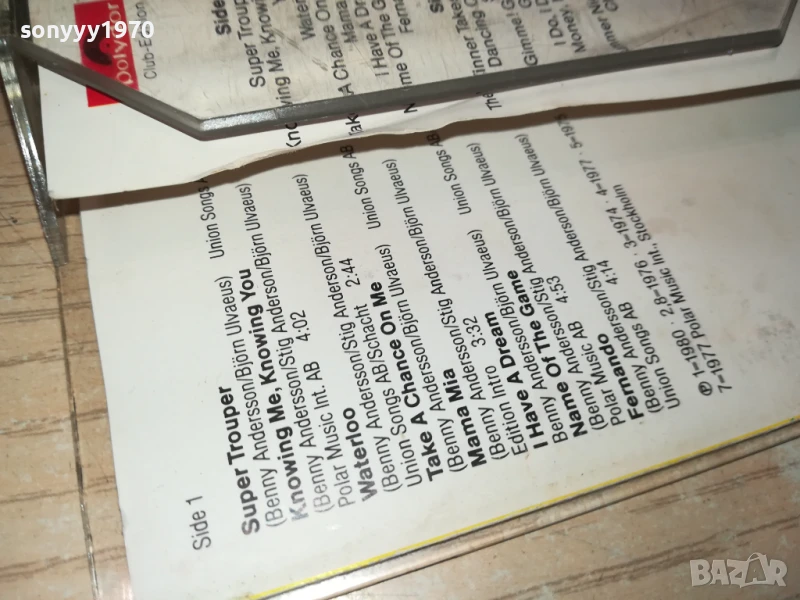 sonyyy1970
polydor
Club-Edition
Side
Super Trouper
Knowing Me, Knowing
Waterloo
Take A Chance On
Mama
I Have A Dr
Name Of The G
Ferna
Si
The Winner Take
Dancing
Gimme! G
I Do,
Money,
Side 1
Super Trouper
(Benny Andersson/Björn Ulvaeus) Union Songs
Knowing Me, Knowing You
(Benny Andersson/Stig Anderson/Björn Ulvaeus)
Polar Music Int. AB 4:02
Waterloo
(Benny Andersson/Stig Anderson/Björn Ulvaeus)
Union Songs AB/Schacht 2:44
Take A Chance On Me
(Benny Andersson/Björn Ulvaeus) Union Songs AB
Mama Mia
(Benny Andersson/Stig Anderson/Björn Ulvaeus)
Edition Intro 3:32
I Have A Dream
(Benny Andersson/Björn Ulvaeus) Union Songs AB
Name Of The Game
(Benny Andersson/Stig Anderson/Björn Ulvaeus)
Polar Music AB 4:53
Fernando
(Benny Andersson/Stig Anderson/Björn Ulvaeus)
Union Songs AB 4:14
℗ 1=1980 · 2,8=1976 · 3=1974 · 4=1977 · 5=1975
7=1977 Polar Music Int., Stockholm
BAZAR